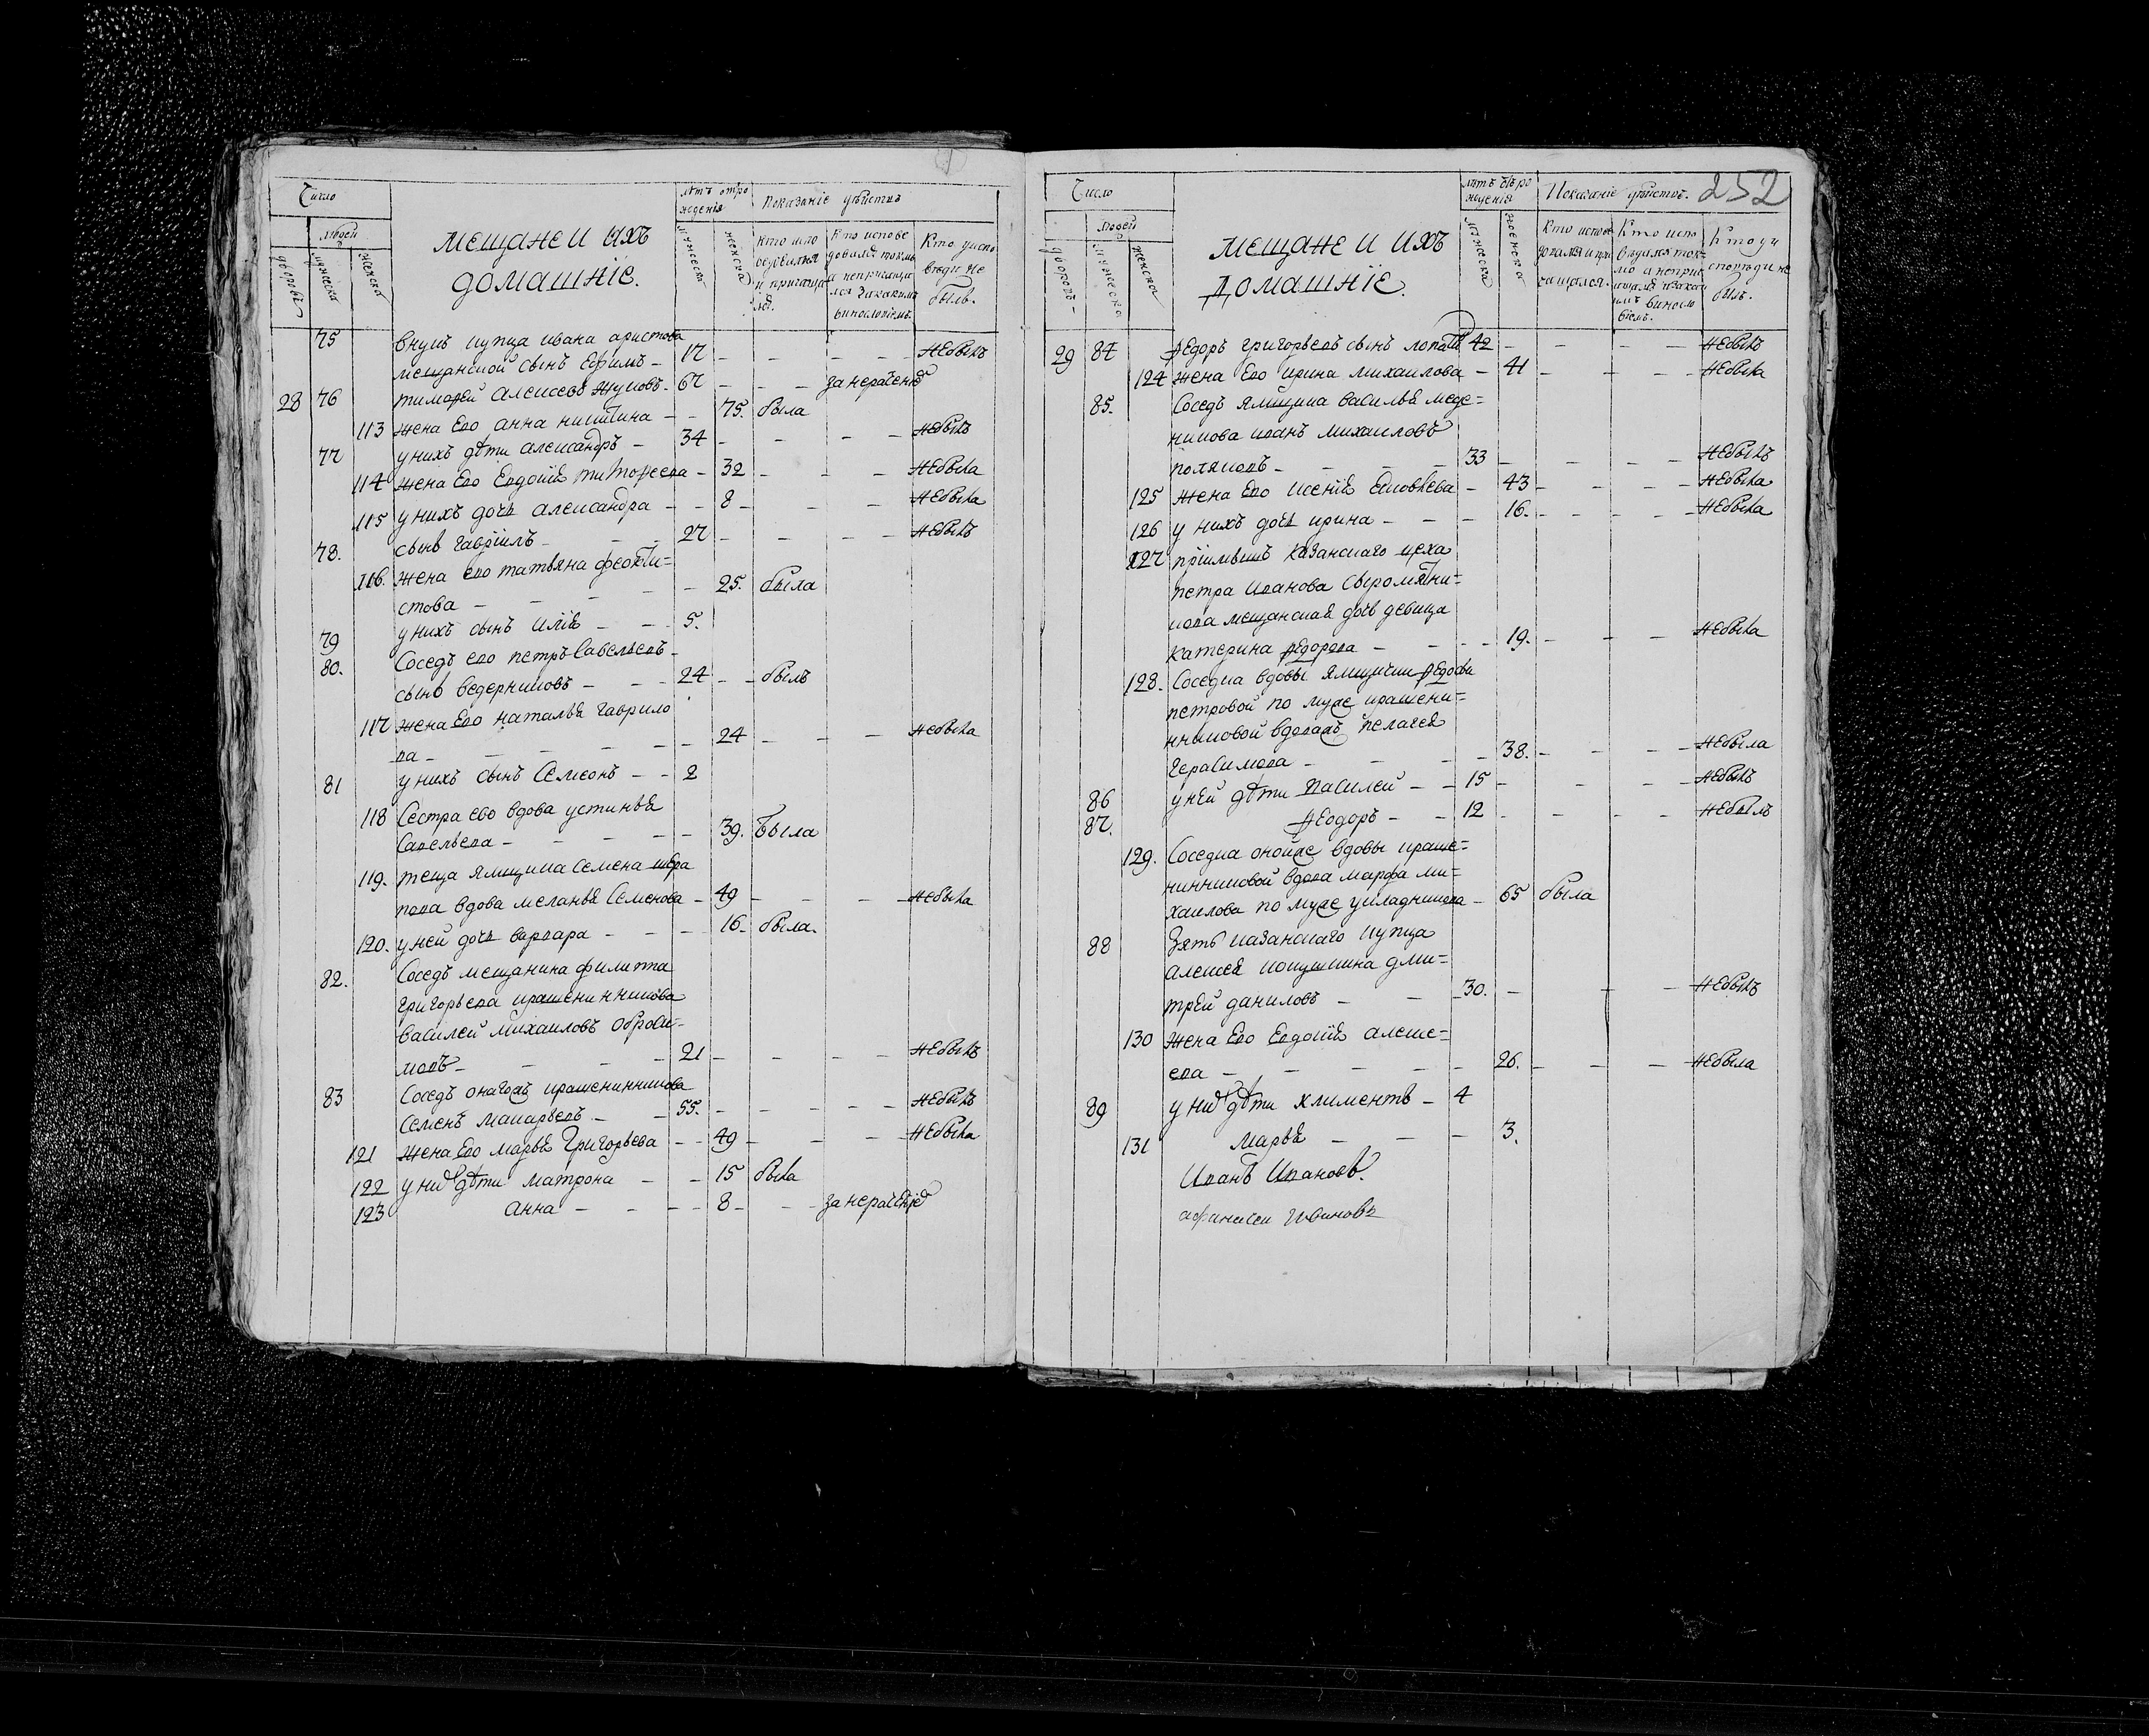 Число
людей
дворовъ
мужеска
женска
мещане и ихъ
домашніе.
лѣтъ отро
жденія
мужеска
женска
Показаніе убытовъ
кто испо
ведовался
и причаща
лся
Кто испове
довался токмъ
а непричаща
лся закакимъ
винословіемъ.
Кто уиспо
веди не
былъ.
75 внукъ купца ивана аристова
мещанской сынъ Ефимъ - 17 - - - - небылъ
28 76 тимофей алексеевъ жуковъ - 67 - - - занераченіе
113 жена Ево анна никитина - - 75. была
77 унихъ дѣти александръ - 34 - - - - небылъ
114 жена Ево Евдокія тимофеева - 32 - - - небыла
115 унихъ дочь александра - - 8 - - - небыла
78. сынъ гавріилъ - - - 27 - - - - небылъ
116. жена ево татьяна феокти=
стова - - - - - 25. была
79 унихъ сынъ илія - - - 5.
80. Соседъ ево петръ Савельевъ -
сынъ ведерниковъ - - - 24 - - былъ
117 жена Ево наталья гаврило
ва - - - - - - 24 - - - небыла
81 унихъ сынъ Семеонъ - - 2
118 Сестра ево вдова устинья
Савельева - - - - - 39. была
119. теща ямщика Семена
вдова меланья Семенова - 49 - - - - небыла
120. уней дочь варвара - - - - 16 - была.
82. Соседъ мещанина филиппа
григорьева крашенинникова
василей михаиловъ оброси=
мовъ - - - - 21 - - - - небылъ
83 Соседъ онагожъ крашенинникова
Семенъ макарьевъ - - 55. - - - - небылъ
121 жена Ево марья Григорьева - - 49 - - - небыла
122 уни дѣти матрона - - 15 была
123 анна - - - - 8 - - - занераченіе
252
Число
людей
дворовъ -
мужеска
женска
мещане и ихъ
домашніе.
лѣтъ отъро
жденія
мужеска
женска
Показаніе убытовъ.
Кто испове
довался и при
чащался.
Кто испо
ведался ток=
мо а неприч
ащался закак
имъ винсло
віемъ.
Кто уи
споведи не
былъ.
29 84 Федоръ григорьевъ сынъ 42 - - - - небылъ
124 жена Ево ирина михаилова - 41 - - - небыла
85. Соседъ ямщика василья меде=
никова иванъ михаиловъ
поляковъ - - - - 33 - - - - небылъ
125 жена Ево ксенія яковлева - 43 - - - - небыла
126 у нихъ дочь ирина - - - 16. - - - - небыла
127 пріимышъ казанскаго цеха
петра иванова Сыромятни=
кова мещанская дочь девица
катерина федорова - - - 19. - - - небыла
128. Соседка вдовы ямщички федосьи
петровой по муже крашени=
нниковой вдоважъ пелагея
герасимова - - - - 38. - - - небыла
86 уней дѣти василей - - 15 - - - - небылъ
87. Феодоръ - - 12 - - - - небылъ
129. Соседка онойже вдовы краше=
нинниковой вдова марфа ми=
хаилова по муже укладникова - 65 была
88 Зять казанскаго купца
алексея кокушкина дми=
трей даниловъ - - 30. - - - небылъ
130 жена Ево Евдокія алексе=
ева - - - - - 26. - - - небыла
89 у ни дѣти климентъ - 4
131 марья - - - 3.
Иванъ Ивановъ.